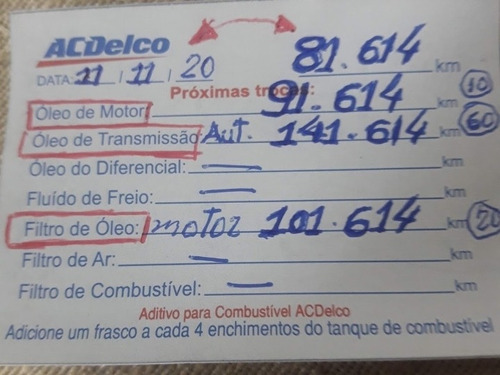 ACDelco
DATA: 11 / 11 / 20 81.614 km
Próximas trocas:
Óleo de Motor 91.614 km 10
Óleo de Transmissão: Aut. 141.614 km 60
Óleo do Diferencial: — km
Fluído de Freio: — km
Filtro de Óleo: motor 101.614 km 20
Filtro de Ar: — km
Filtro de Combustível: — km
Aditivo para Combustível ACDelco
Adicione um frasco a cada 4 enchimentos do tanque de combustível